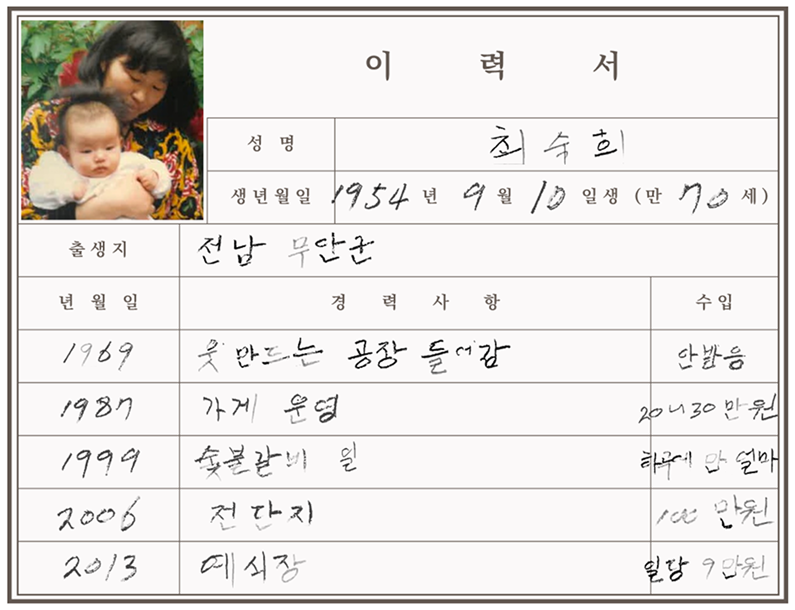 이 력 서
성 명 최숙희
생년월일 1954 년 9 월 10 일생 (만 70 세)
출생지 전남 무안군
년 월 일 경 력 사 항 수입
1969 옷 만드는 공장 들어감 안받음
1987 가게 운영 20에서 30 만원
1999 숯불갈비 일 하루에 만 얼마
2006 전단지 100 만원
2013 예식장 일당 9만원